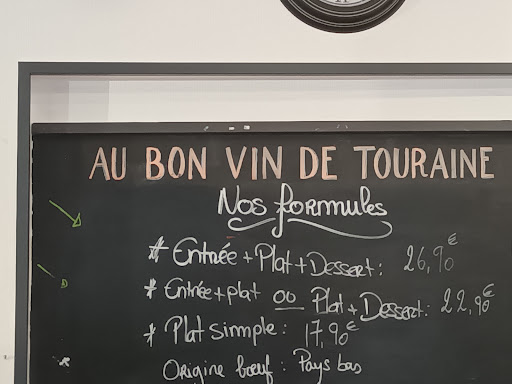 AU BON VIN DE TOURAINE
Nos formules
* Entrée + Plat + Dessert : 26,90€
* Entrée + plat ou Plat + Dessert : 22,90€
* Plat simple : 17,90€
Origine bœuf : Pays bas